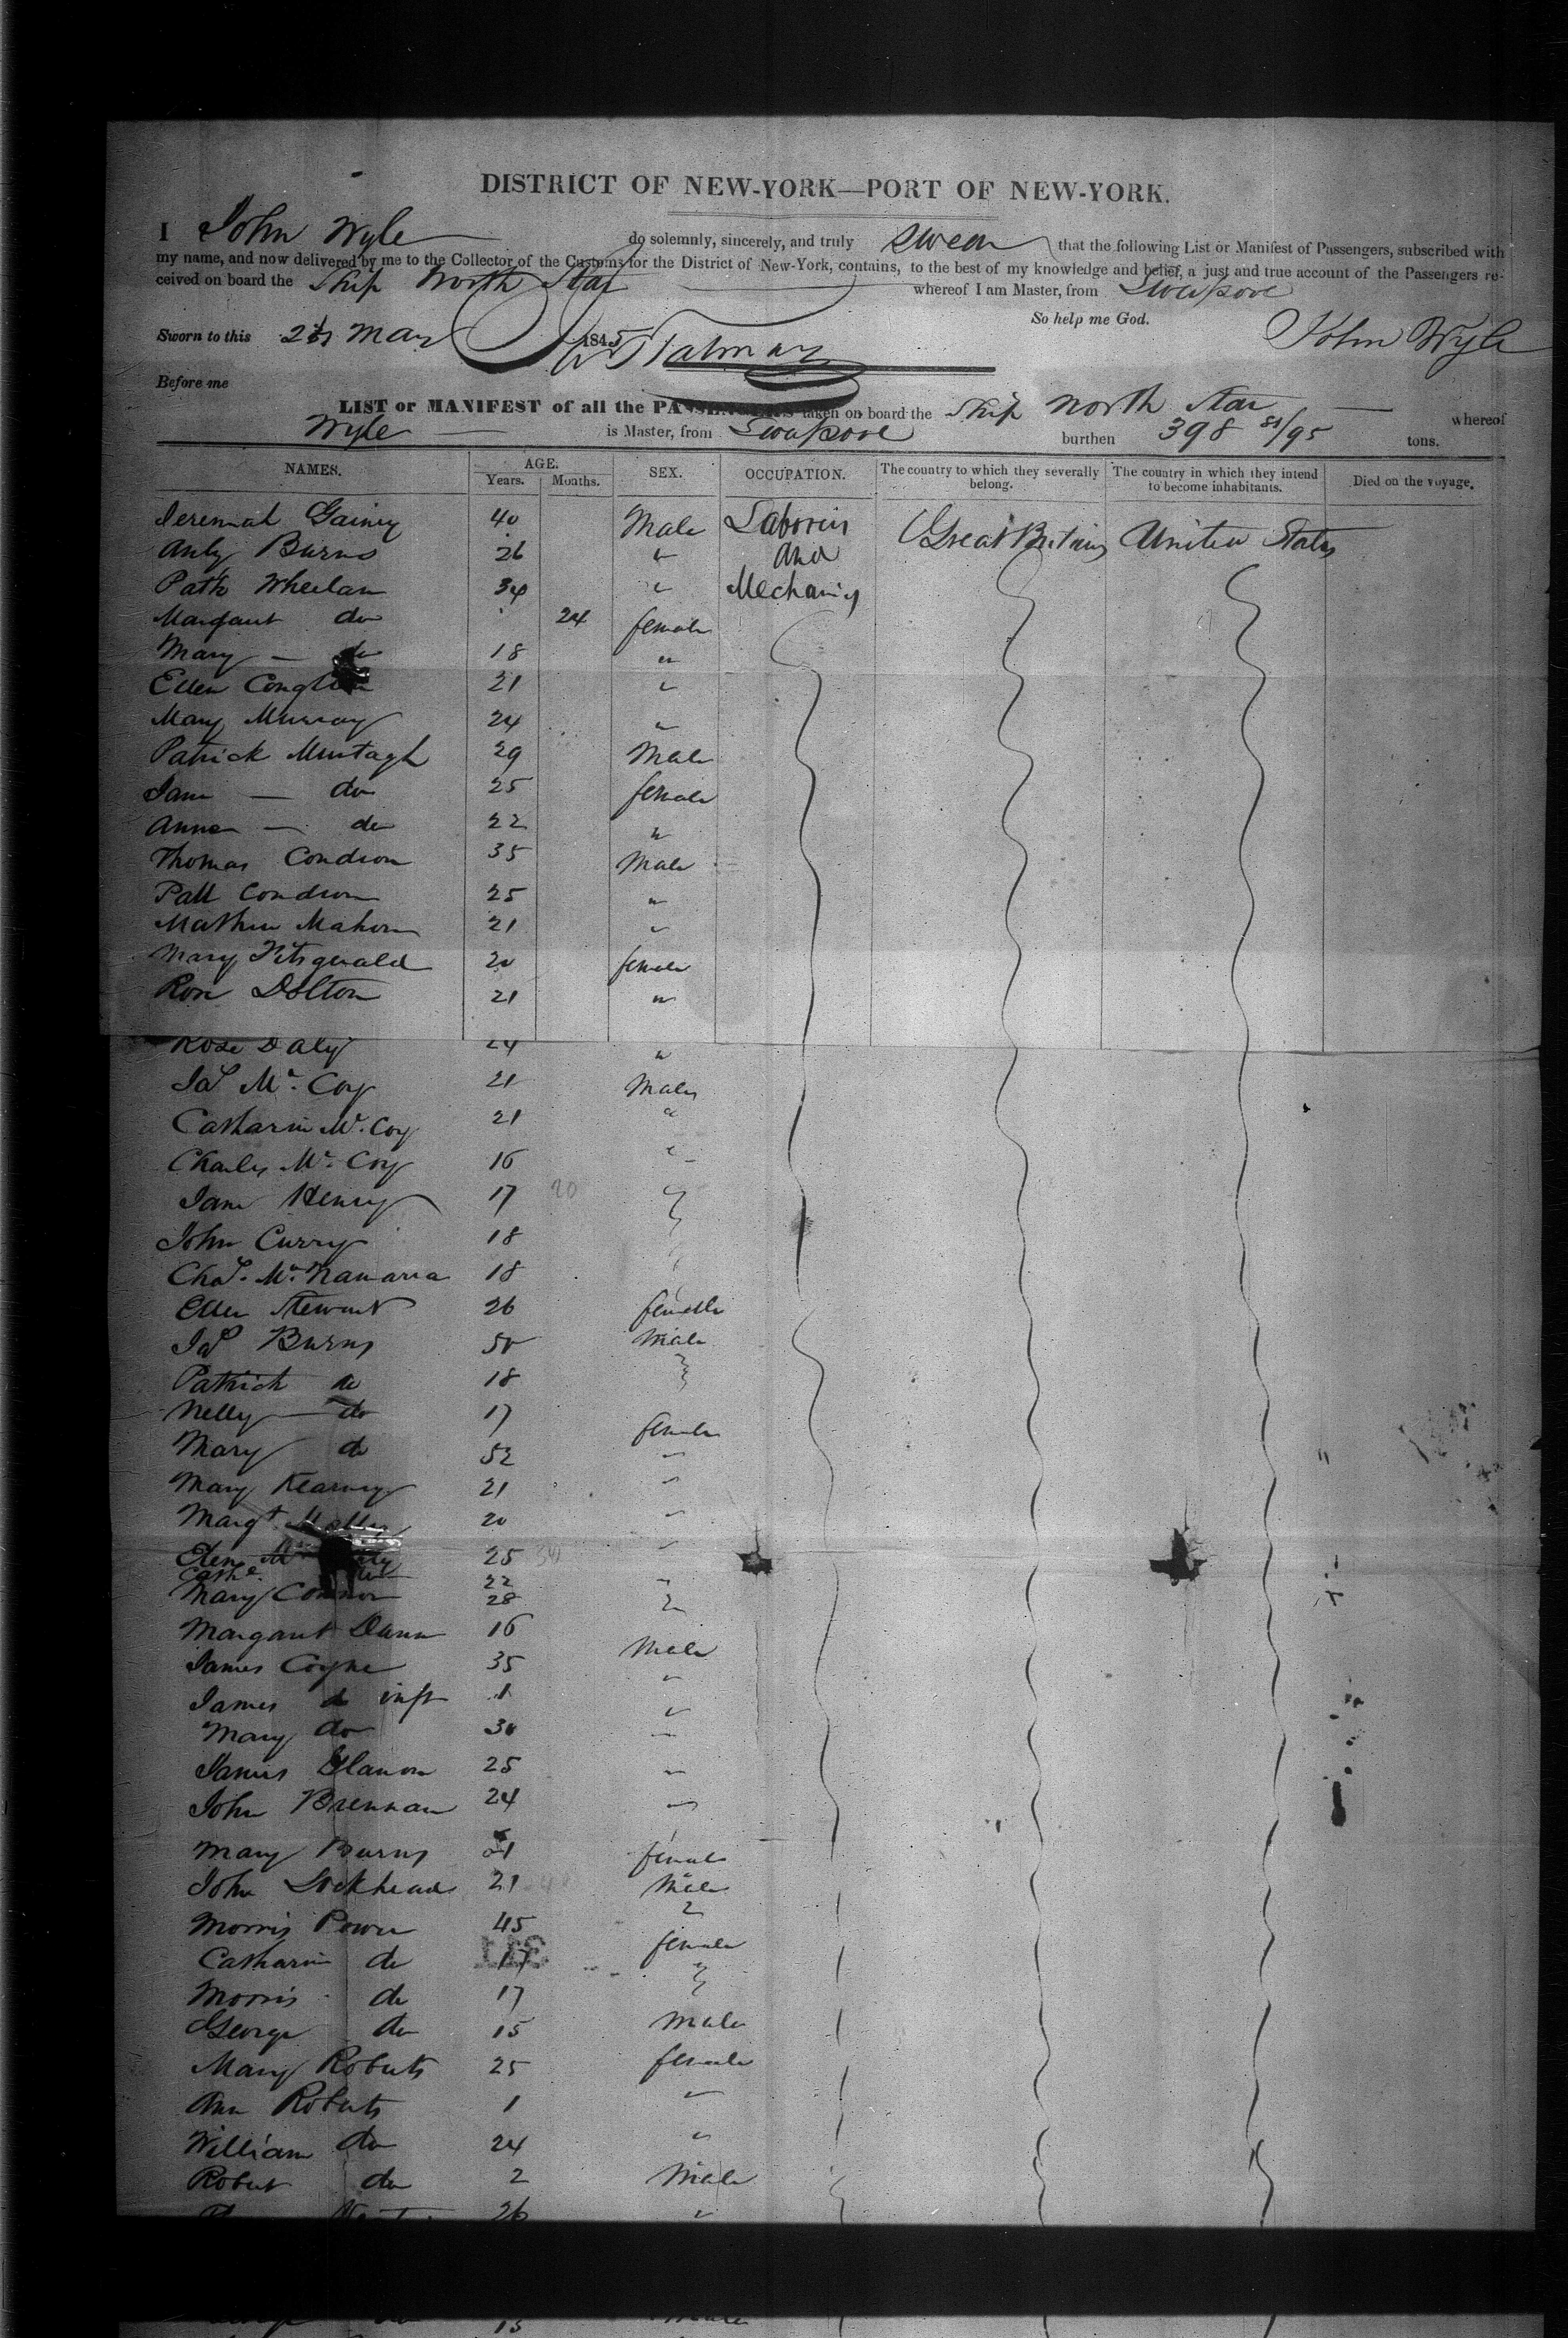 DISTRICT OF NEW-YORK—PORT OF NEW-YORK.
I John Wyle do solemnly, sincerely, and truly swear that the following List or Manifest of Passengers, subscribed with
my name, and now delivered by me to the Collector of the Customs for the District of New-York, contains, to the best of my knowledge and belief, a just and true account of the Passengers re-
ceived on board the Ship North Star whereof I am Master, from
So help me God.
Sworn to this May 1845 John Wyle
Before me
LIST or MANIFEST of all the PASSENGERS taken on board the Ship North Star whereof
Wyle is Master, from burthen 398 81/95 tons.
NAMES. AGE. Years. Months. SEX. OCCUPATION. The country to which they severally belong. The country in which they intend to become inhabitants. Died on the voyage.
40 Male Laborers Great Britain United States
Burns 26 " and
Patk Wheelan 34 " Mechanics
Margaret do 24 female
Mary — do 18 "
Ellen 21 "
Mary Murray 24 "
Patrick Murtagh 29 Male
Jane — do 25 female
Anne — do 22 "
Thomas Condron 35 Male
Patt Condron 25 "
Mathew Mahon 21 "
Mary Fitsgerald 20 female
Rose Dolton 21 "
Rose Daly 24 "
Jas Mc Coy 21 Male
Catharin Mc Coy 21 "
Charles Mc Coy 16 "
Jane Henry 17 20
John Curry 18
Chas. Mc Namarra 18
Ellen Stewart 26 female
Jas Burns 50 Male
Patrick do 18
Nelly — do 17 female
Mary do 52 "
Mary Kearney 21 "
Margt 20 "
Ellen Mc 25 "
Cathe. do 22 "
Mary Connor 28
Margaret Dunn 16
James Coyne 35 Male
James do inft 1 "
Mary do 30 "
James 25 "
John Brennan 24 "
Mary Burns female
John Lockhead 21 Male
Morris Power 45
Catharin do 17 female
Morris do 17
George do 15 Male
Mary Roberts 25 female
Ann Roberts 1 "
William do 24 "
Robert do 2 Male
26 "
do 15